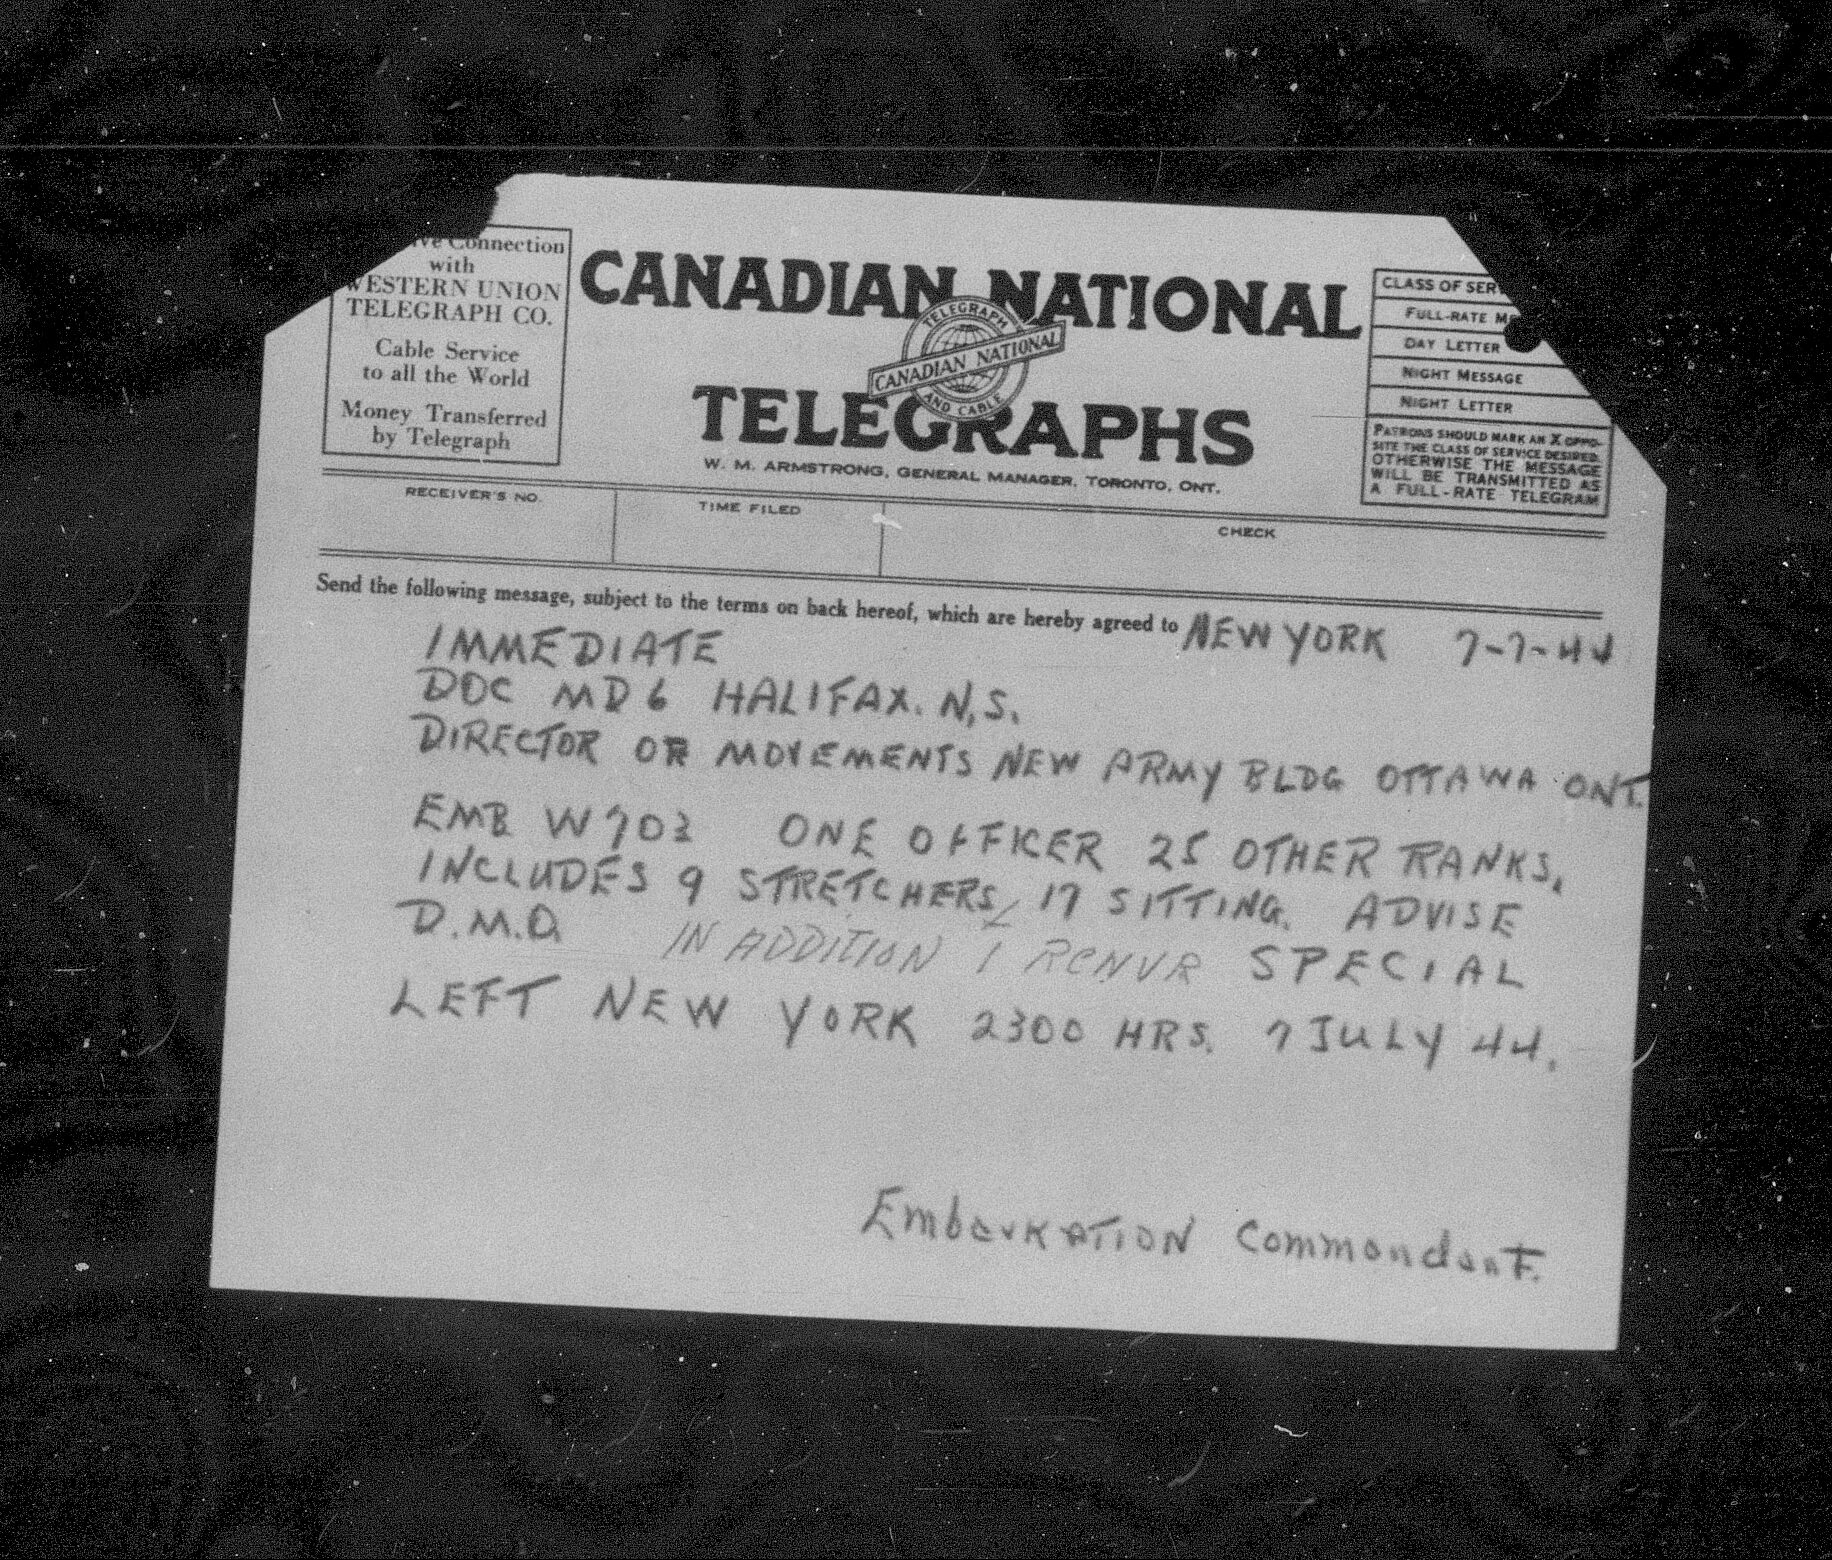 ve Connection
with
WESTERN UNION
TELEGRAPH CO.
Cable Service
to all the World
Money Transferred
by Telegraph
CANADIAN NATIONAL
TELEGRAPH
CANADIAN NATIONAL
AND CABLE
TELEGRAPHS
W. M. ARMSTRONG, GENERAL MANAGER, TORONTO, ONT.
CLASS OF SER
FULL-RATE ME
DAY LETTER
NIGHT MESSAGE
NIGHT LETTER
PATRONS SHOULD MARK AN X OPPO-
SITE THE CLASS OF SERVICE DESIRED.
OTHERWISE THE MESSAGE
WILL BE TRANSMITTED AS
A FULL-RATE TELEGRAM
RECEIVER'S NO. TIME FILED CHECK
Send the following message, subject to the terms on back hereof, which are hereby agreed to NEW YORK 7-7-44
IMMEDIATE
DOC MD 6 HALIFAX. N.S.
DIRECTOR OF MOVEMENTS NEW ARMY BLDG OTTAWA ONT.
EMB W703 ONE OFFICER 25 OTHER RANKS.
INCLUDES 9 STRETCHERS 17 SITTING. ADVISE
D.M.O. IN ADDITION 1 RCNVR SPECIAL
LEFT NEW YORK 2300 HRS. 7 JULY 44.
Embarkation Commandant.